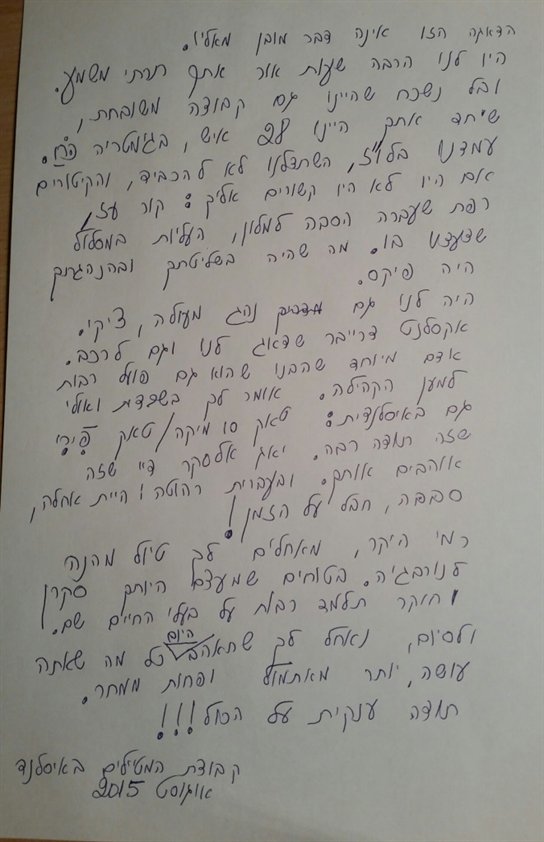 הדאגה הזו אינה דבר מובן מאליו.
היו לנו הרבה שעות אור אתך תרתי משמע.
ובל נשכח שהיינו גם קבוצה משובחת,
שיחד אתך היינו 28 איש, בגמטריה כח.
עמדנו בלו"ז, השתדלנו לא להכביד, והקיטורים
אם היו לא היו קשורים אליך: קור עז,
רפת שעברה הסבה למלון, העליות במסלול
שצעדנו בו. מה שהיה בשליטתך ובהנהגתך
היה פיקס.
היה לנו גם נהג מעולה, ציקי.
אקסלנט דרייבר שדאג לנו וגם לרכב.
אדם מיוחד שהבנו שהוא גם פועל רבות
למען הקהילה. אומר לך בשפדת ואולי
גם באיסלנדית: טאק סו מיקה/טאק פירי
שזה תודה רבה. יאג אלסקר דיי שזה
אוהבים אותך. ובעברית רהוטה! היית אחלה,
סבבה, חבל על הזמן!
רמי היקר, מאחלים לך טיול מהנה
לנורבגיה. בטוחים שמעצם היותך סקרן
וחוקר תלמד רבות על בעלי החיים שם.
ולסיום, נאחל לך שתאהב היום כל מה שאתה
עושה, יותר מאתמול ופחות ממחר.
תודה ענקית על הכול!!!
קבוצת המטיילים באיסלנד
אוגוסט 2015